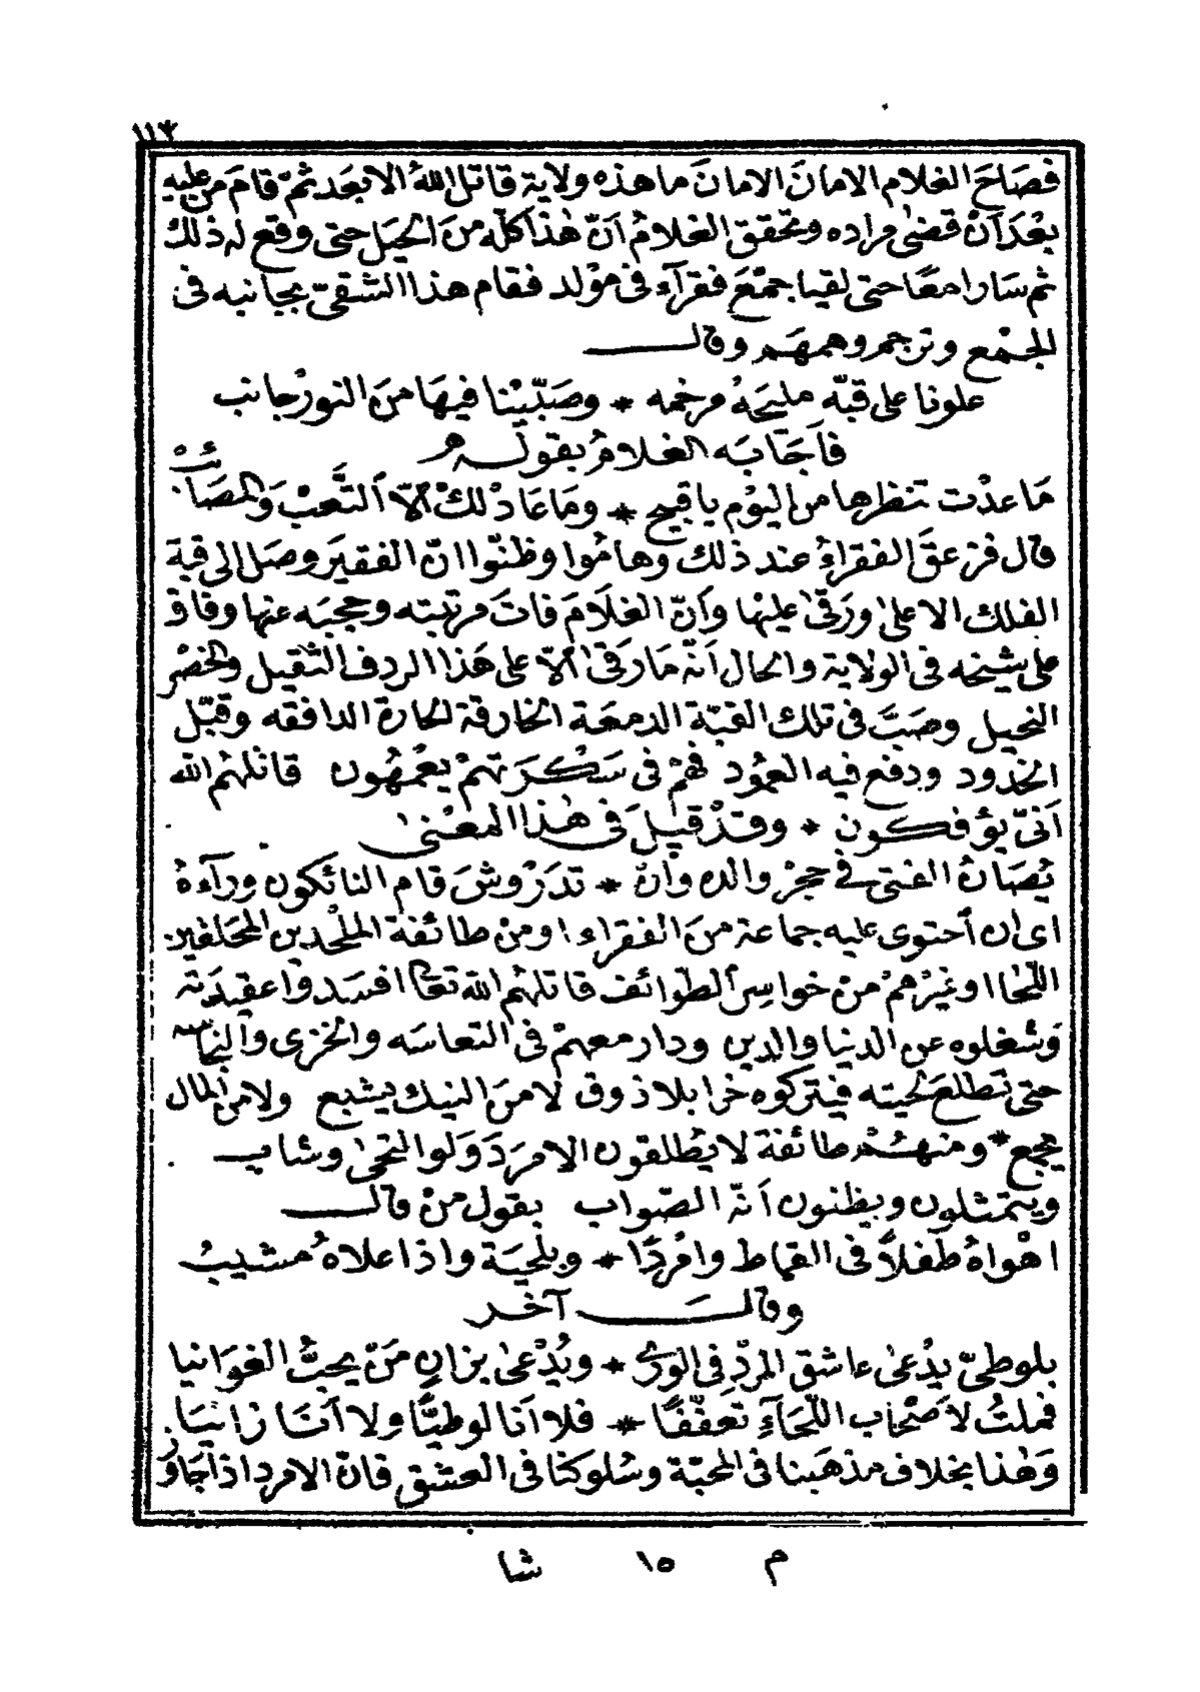 ١١٣
فصَاحَ الغلام الامانَ الامانَ ما هذه ولاية قاتل اللهُ الابعَد ثمّ قامَ من عليه
بعْدَ أنْ قضىٰ مراده وتحقق الغلامُ أنّ هٰذا كلّه منَ الحيَل حتى وقع له ذلك
ثم سَارا معًا حتى لقيا جمْعَ فقرآء في موْلد فقام هذا الشقىّ بجانبه في
الجمْع وترجم وهمهَم وقال
علونا على قبّه مليحَهْ مرخمه * وصَبّيْنا فيهَا منَ النورْ جانب
فأجَابَه الغلامُ بقوله
مَا عدْت تنظرها من اليوْم يا قبيح * ومَا عَادْ لكْ الّا التَّعبْ والمصَائبْ
قال فزعقَ الفقراءُ عند ذلك وهامُوا وظنّوا انّ الفقيرَ وصَل الى قبة
الفلك الاعلىٰ ورَقىٰ عليْها وأنّ الغلَامَ فاتَ مرتبته وحجبَه عنها وفاق
على شيخه في الولاية والحال أنّه مَا رَقىٰ الّا على هَذا الردف الثقيل والخصْر
النحيل وصَبَّ في تلك القبّة الدمعَة الخارقة الحارة الدافقه وقبّل
الخدود ودفع فيه العمُود فهمْ في سَكْرَتهمْ يعْمَهُون قاتلهُم الله
أنىّ يؤفكون * وقدْ قيلَ في هٰذا المعْنىٰ
يُصَانُ الفتى في حجرْ والده وانْ * تدَرْوشَ قام النائكون ورآءهُ
اى ان أحتوى عليه جماعة منَ الفقراء اومنْ طائفة الملْحدين المحَلقين
اللّحٰا اوغيْرهمْ منْ خواسِر الطوائف قاتلهُم الله تعَالى افسَدوا عقيدَته
وَشغلوه عن الدنيا والدين ودار معهمْ في التعاسَه والخزى والنجاسه
حتى تطلعَ لحيته فيتركوه خرا بلا ذوق لا منَ النيك يشبع ولا من المال
يجمع * ومنهُمْ طائفة لا يُطلقون الامرَدَ وَلو التحىٰ وشاب
ويتمثلون ويظنون أنّه الصّواب بقول منْ قال
اهْواهُ طفلاً في القماط وامْردًا * وبلحيَة واذا علاهُ مشيبُ
وقالَ آخر
بلوطىّ يدْعىٰ عاشق المرْدِ في الورىٰ * ويُدْعىٰ بزانٍ مَنْ يحبُّ الغوَانيا
فملتُ لأصْحاب اللّحَآءِ تعَفّفًا * فلا أنا لوطيًّا ولا أنَا زانيَا
وَهٰذا بخلاف مذهَبنا في المحبّة وسُلوكنا في العشق فانّ الامرد اذا جَاوَ
م ١٥ شا